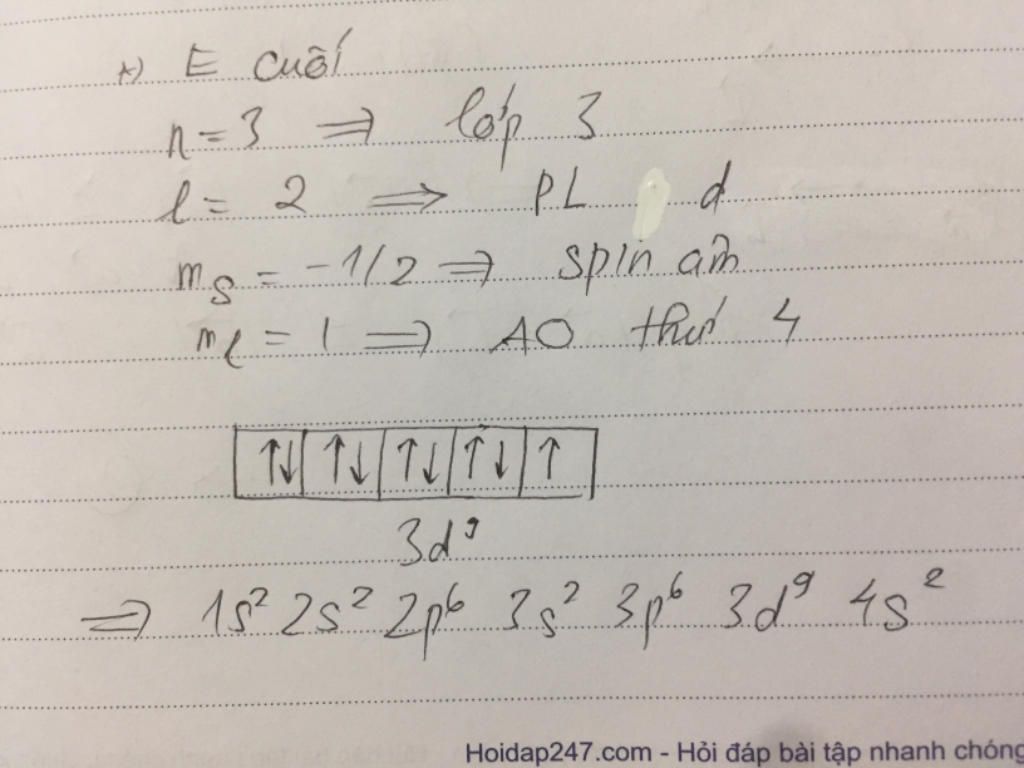 *) E cuối
n = 3 ⇒ lớp 3
l = 2 ⇒ PL d
mₛ = -1/2 ⇒ spin âm
mₗ = 1 ⇒ AO thứ 4
↑↓ ↑↓ ↑↓ ↑↓ ↑
3d⁹
⇒ 1s² 2s² 2p⁶ 3s² 3p⁶ 3d⁹ 4s²
Hoidap247.com - Hỏi đáp bài tập nhanh chóng